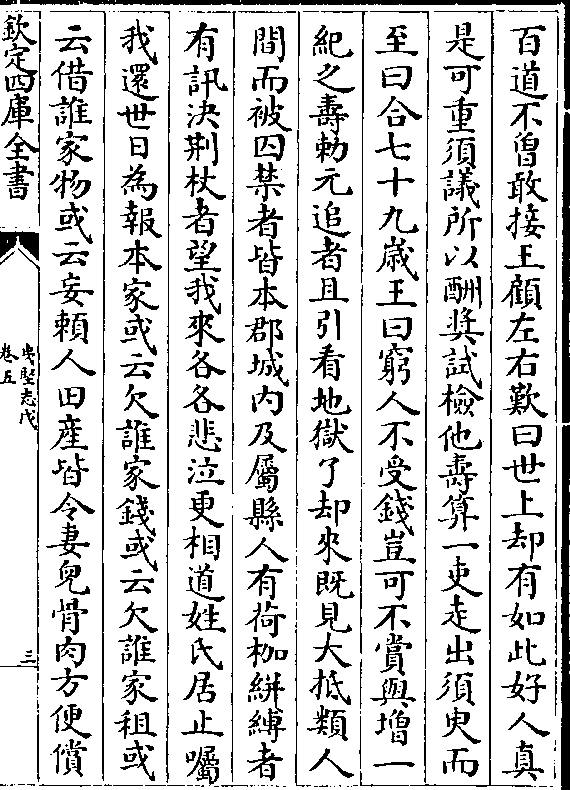 百道不曾敢接王顧左右歎曰世上却有如此好人真
是可重須議所以酬奬試檢他壽算一吏走出須臾而
至曰合七十九歳王曰窮人不受錢豈可不賞與増一
紀之壽勅元追者且引看地獄了却來既見大抵類人
間而被囚禁者皆本郡城内及屬縣人有荷枷絣縛者
有訊決荆杖者望我來各各悲泣更相道姓氏居止囑
我還世日為報本家或云欠誰家錢或云欠誰家租或
云借誰家物或云妄頼人田産皆令妻兒骨肉方便償
欽定四庫全書
夷堅志戊
卷五
三